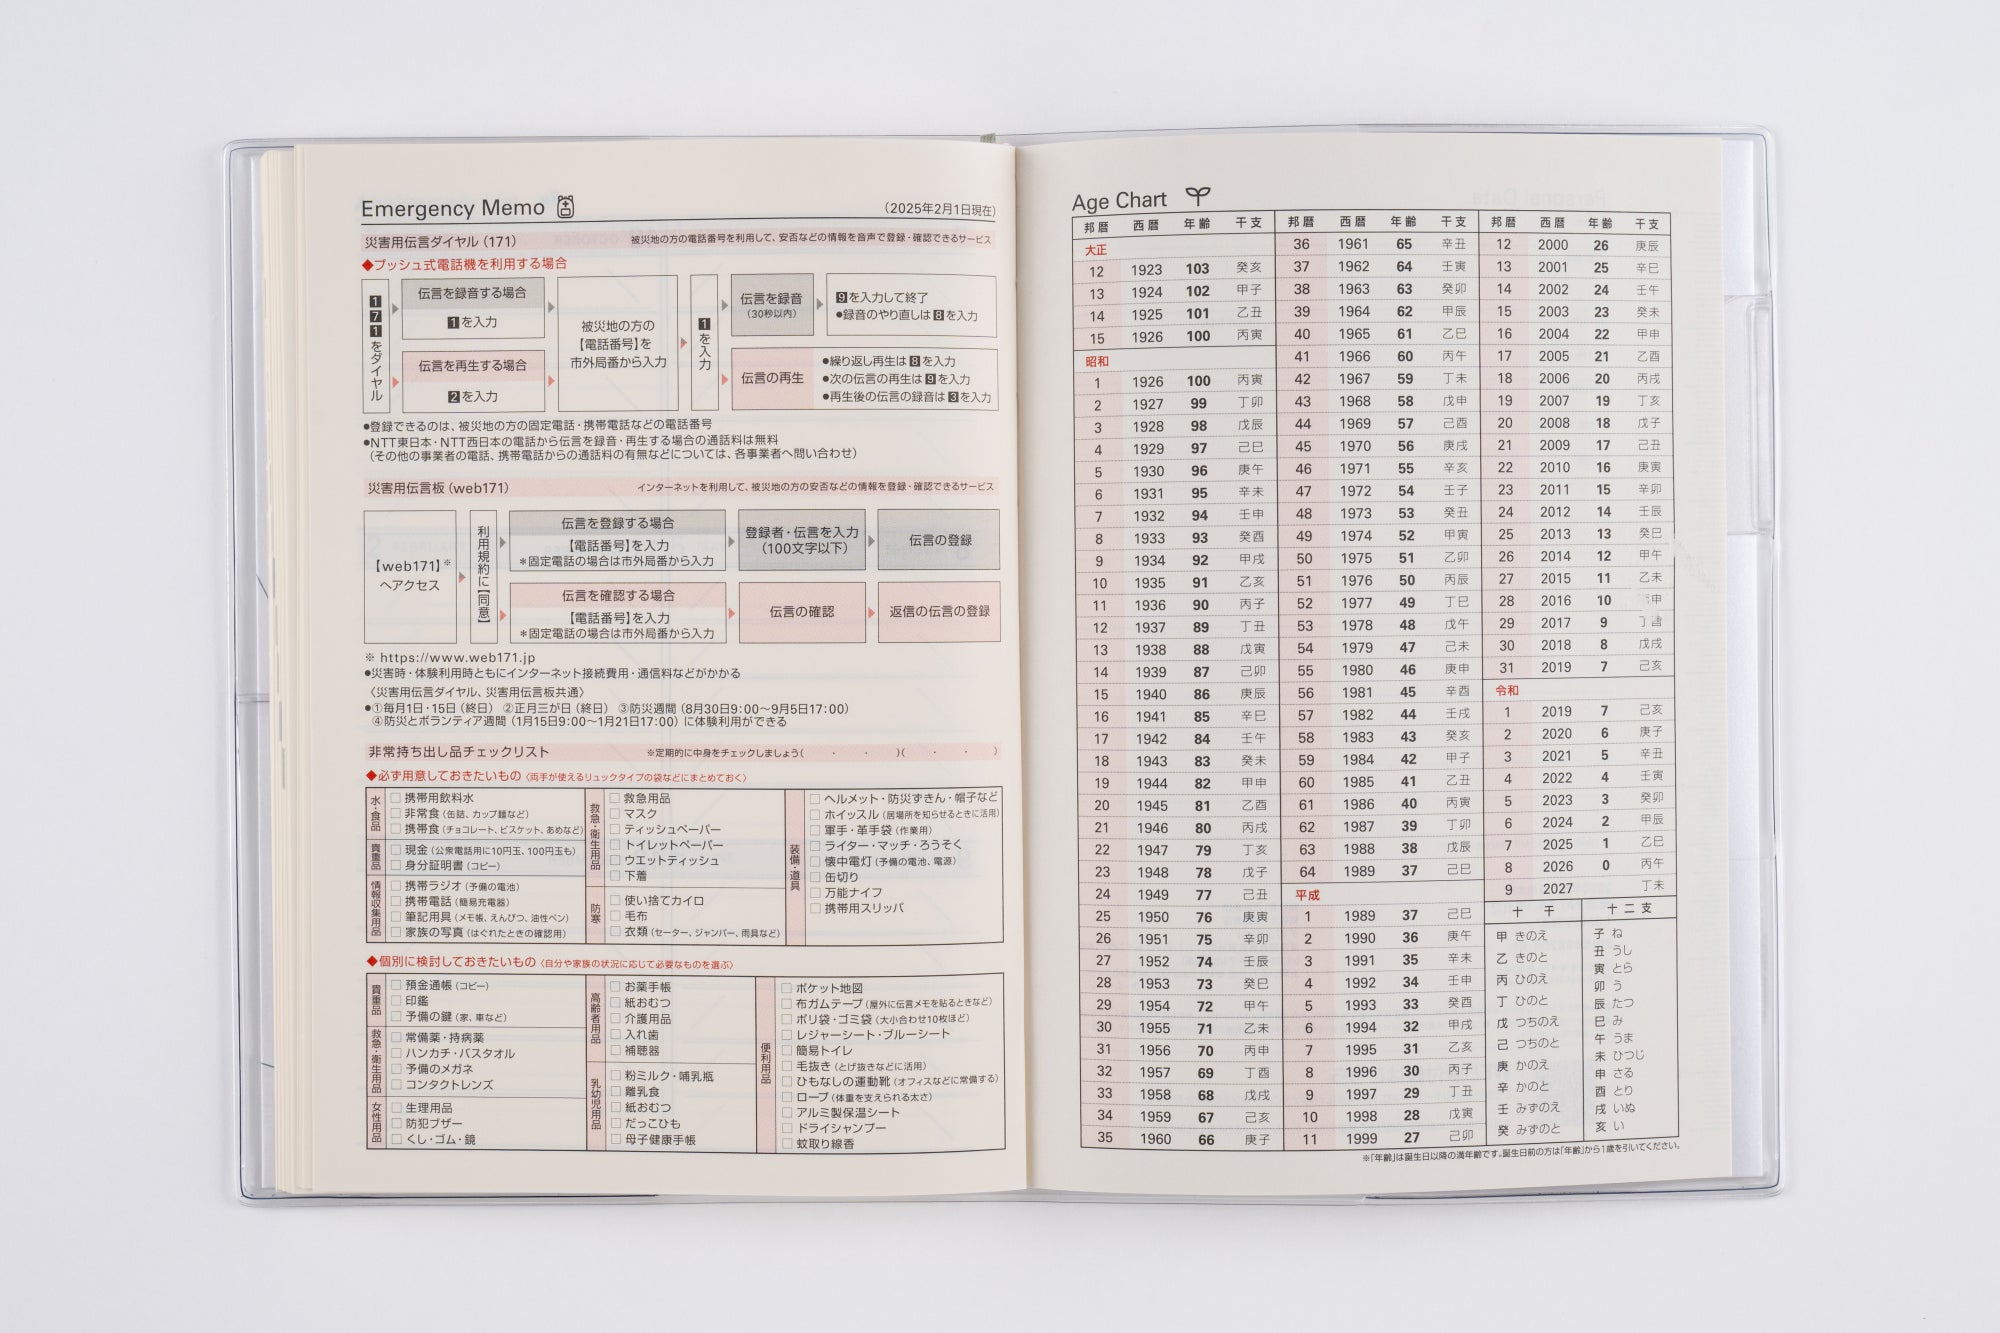 Emergency Memo
(2025年2月1日現在)
災害用伝言ダイヤル(171) 被災地の方の電話番号を利用して、安否などの情報を音声で登録・確認できるサービス
◆プッシュ式電話機を利用する場合
171をダイヤル
伝言を録音する場合
1を入力
伝言を再生する場合
2を入力
被災地の方の
【電話番号】を
市外局番から入力
1を入力
伝言を録音
(30秒以内)
9を入力して終了
●録音のやり直しは8を入力
伝言の再生
●繰り返し再生は8を入力
●次の伝言の再生は9を入力
●再生後の伝言の録音は3を入力
●登録できるのは、被災地の方の固定電話・携帯電話などの電話番号
●NTT東日本・NTT西日本の電話から伝言を録音・再生する場合の通話料は無料
(その他の事業者の電話、携帯電話からの通話料の有無などについては、各事業者へ問い合わせ)
災害用伝言板(web171) インターネットを利用して、被災地の方の安否などの情報を登録・確認できるサービス
【web171】※
へアクセス
利用規約に【同意】
伝言を登録する場合
【電話番号】を入力
*固定電話の場合は市外局番から入力
登録者・伝言を入力
(100文字以下)
伝言の登録
伝言を確認する場合
【電話番号】を入力
*固定電話の場合は市外局番から入力
伝言の確認
返信の伝言の登録
※ https://www.web171.jp
●災害時・体験利用時ともにインターネット接続費用・通信料などがかかる
〈災害用伝言ダイヤル、災害用伝言板共通〉
●①毎月1日・15日(終日) ②正月三が日(終日) ③防災週間(8月30日9:00〜9月5日17:00)
④防災とボランティア週間(1月15日9:00〜1月21日17:00)に体験利用ができる
非常持ち出し品チェックリスト ※定期的に中身をチェックしましょう( ・ ・ )( ・ ・ )
◆必ず用意しておきたいもの〈両手が使えるリュックタイプの袋などにまとめておく〉
水・食品
□携帯用飲料水
□非常食(缶詰、カップ麺など)
□携帯食(チョコレート、ビスケット、あめなど)
貴重品
□現金(公衆電話用に10円玉、100円玉も)
□身分証明書(コピー)
情報収集用品
□携帯ラジオ(予備の電池)
□携帯電話(簡易充電器)
□筆記用具(メモ帳、えんぴつ、油性ペン)
□家族の写真(はぐれたときの確認用)
救急・衛生用品
□救急用品
□マスク
□ティッシュペーパー
□トイレットペーパー
□ウエットティッシュ
□下着
防寒
□使い捨てカイロ
□毛布
□衣類(セーター、ジャンパー、雨具など)
装備・道具
□ヘルメット・防災ずきん・帽子など
□ホイッスル(居場所を知らせるときに活用)
□軍手・革手袋(作業用)
□ライター・マッチ・ろうそく
□懐中電灯(予備の電池、電源)
□缶切り
□万能ナイフ
□携帯用スリッパ
◆個別に検討しておきたいもの〈自分や家族の状況に応じて必要なものを選ぶ〉
貴重品
□預金通帳(コピー)
□印鑑
□予備の鍵(家、車など)
救急・衛生用品
□常備薬・持病薬
□ハンカチ・バスタオル
□予備のメガネ
□コンタクトレンズ
女性用品
□生理用品
□防犯ブザー
□くし・ゴム・鏡
高齢者用品
□お薬手帳
□紙おむつ
□介護用品
□入れ歯
□補聴器
乳幼児用品
□粉ミルク・哺乳瓶
□離乳食
□紙おむつ
□だっこひも
□母子健康手帳
便利用品
□ポケット地図
□布ガムテープ(屋外に伝言メモを貼るときなど)
□ポリ袋・ゴミ袋(大小合わせ10枚ほど)
□レジャーシート・ブルーシート
□簡易トイレ
□毛抜き(とげ抜きなどに活用)
□ひもなしの運動靴(オフィスなどに常備する)
□ロープ(体重を支えられる太さ)
□アルミ製保温シート
□ドライシャンプー
□蚊取り線香
Age Chart
邦暦 西暦 年齢 干支
大正
12 1923 103 癸亥
13 1924 102 甲子
14 1925 101 乙丑
15 1926 100 丙寅
昭和
1 1926 100 丙寅
2 1927 99 丁卯
3 1928 98 戊辰
4 1929 97 己巳
5 1930 96 庚午
6 1931 95 辛未
7 1932 94 壬申
8 1933 93 癸酉
9 1934 92 甲戌
10 1935 91 乙亥
11 1936 90 丙子
12 1937 89 丁丑
13 1938 88 戊寅
14 1939 87 己卯
15 1940 86 庚辰
16 1941 85 辛巳
17 1942 84 壬午
18 1943 83 癸未
19 1944 82 甲申
20 1945 81 乙酉
21 1946 80 丙戌
22 1947 79 丁亥
23 1948 78 戊子
24 1949 77 己丑
25 1950 76 庚寅
26 1951 75 辛卯
27 1952 74 壬辰
28 1953 73 癸巳
29 1954 72 甲午
30 1955 71 乙未
31 1956 70 丙申
32 1957 69 丁酉
33 1958 68 戊戌
34 1959 67 己亥
35 1960 66 庚子
邦暦 西暦 年齢 干支
36 1961 65 辛丑
37 1962 64 壬寅
38 1963 63 癸卯
39 1964 62 甲辰
40 1965 61 乙巳
41 1966 60 丙午
42 1967 59 丁未
43 1968 58 戊申
44 1969 57 己酉
45 1970 56 庚戌
46 1971 55 辛亥
47 1972 54 壬子
48 1973 53 癸丑
49 1974 52 甲寅
50 1975 51 乙卯
51 1976 50 丙辰
52 1977 49 丁巳
53 1978 48 戊午
54 1979 47 己未
55 1980 46 庚申
56 1981 45 辛酉
57 1982 44 壬戌
58 1983 43 癸亥
59 1984 42 甲子
60 1985 41 乙丑
61 1986 40 丙寅
62 1987 39 丁卯
63 1988 38 戊辰
64 1989 37 己巳
平成
1 1989 37 己巳
2 1990 36 庚午
3 1991 35 辛未
4 1992 34 壬申
5 1993 33 癸酉
6 1994 32 甲戌
7 1995 31 乙亥
8 1996 30 丙子
9 1997 29 丁丑
10 1998 28 戊寅
11 1999 27 己卯
邦暦 西暦 年齢 干支
12 2000 26 庚辰
13 2001 25 辛巳
14 2002 24 壬午
15 2003 23 癸未
16 2004 22 甲申
17 2005 21 乙酉
18 2006 20 丙戌
19 2007 19 丁亥
20 2008 18 戊子
21 2009 17 己丑
22 2010 16 庚寅
23 2011 15 辛卯
24 2012 14 壬辰
25 2013 13 癸巳
26 2014 12 甲午
27 2015 11 乙未
28 2016 10 丙申
29 2017 9 丁酉
30 2018 8 戊戌
31 2019 7 己亥
令和
1 2019 7 己亥
2 2020 6 庚子
3 2021 5 辛丑
4 2022 4 壬寅
5 2023 3 癸卯
6 2024 2 甲辰
7 2025 1 乙巳
8 2026 0 丙午
9 2027 丁未
十干
甲 きのえ
乙 きのと
丙 ひのえ
丁 ひのと
戊 つちのえ
己 つちのと
庚 かのえ
辛 かのと
壬 みずのえ
癸 みずのと
十二支
子 ね
丑 うし
寅 とら
卯 う
辰 たつ
巳 み
午 うま
未 ひつじ
申 さる
酉 とり
戌 いぬ
亥 い
※「年齢」は誕生日以降の満年齢です。誕生日前の方は「年齢」から1歳を引いてください。